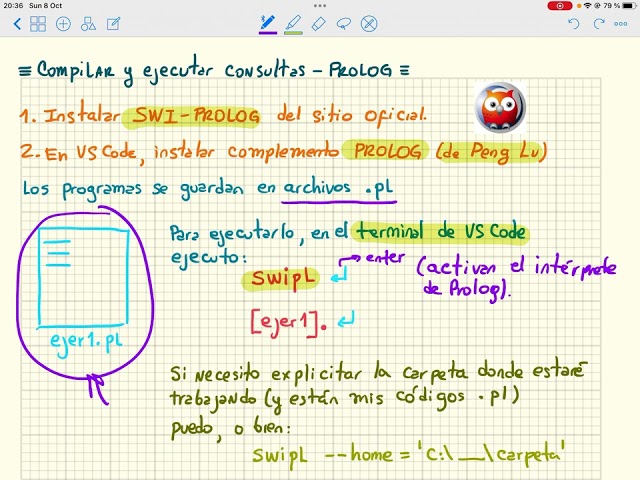 20:36 Sun 8 Oct
79 %
≡ Compilar y ejecutar consultas - PROLOG ≡
1. Instalar SWI-PROLOG del sitio oficial.
2. En VS Code, instalar complemento PROLOG (de Peng Lv)
Los programas se guardan en archivos .pl
Para ejecutarlo, en el terminal de VS Code
ejecuto:
swipl ↵ → enter (activan el intérprete
de Prolog).
[ejer1]. ↵
ejer1.pl
Si necesito explicitar la carpeta donde estaré
trabajando (y están mis códigos .pl)
puedo, o bien:
swipl --home = 'C:\ __\carpeta'